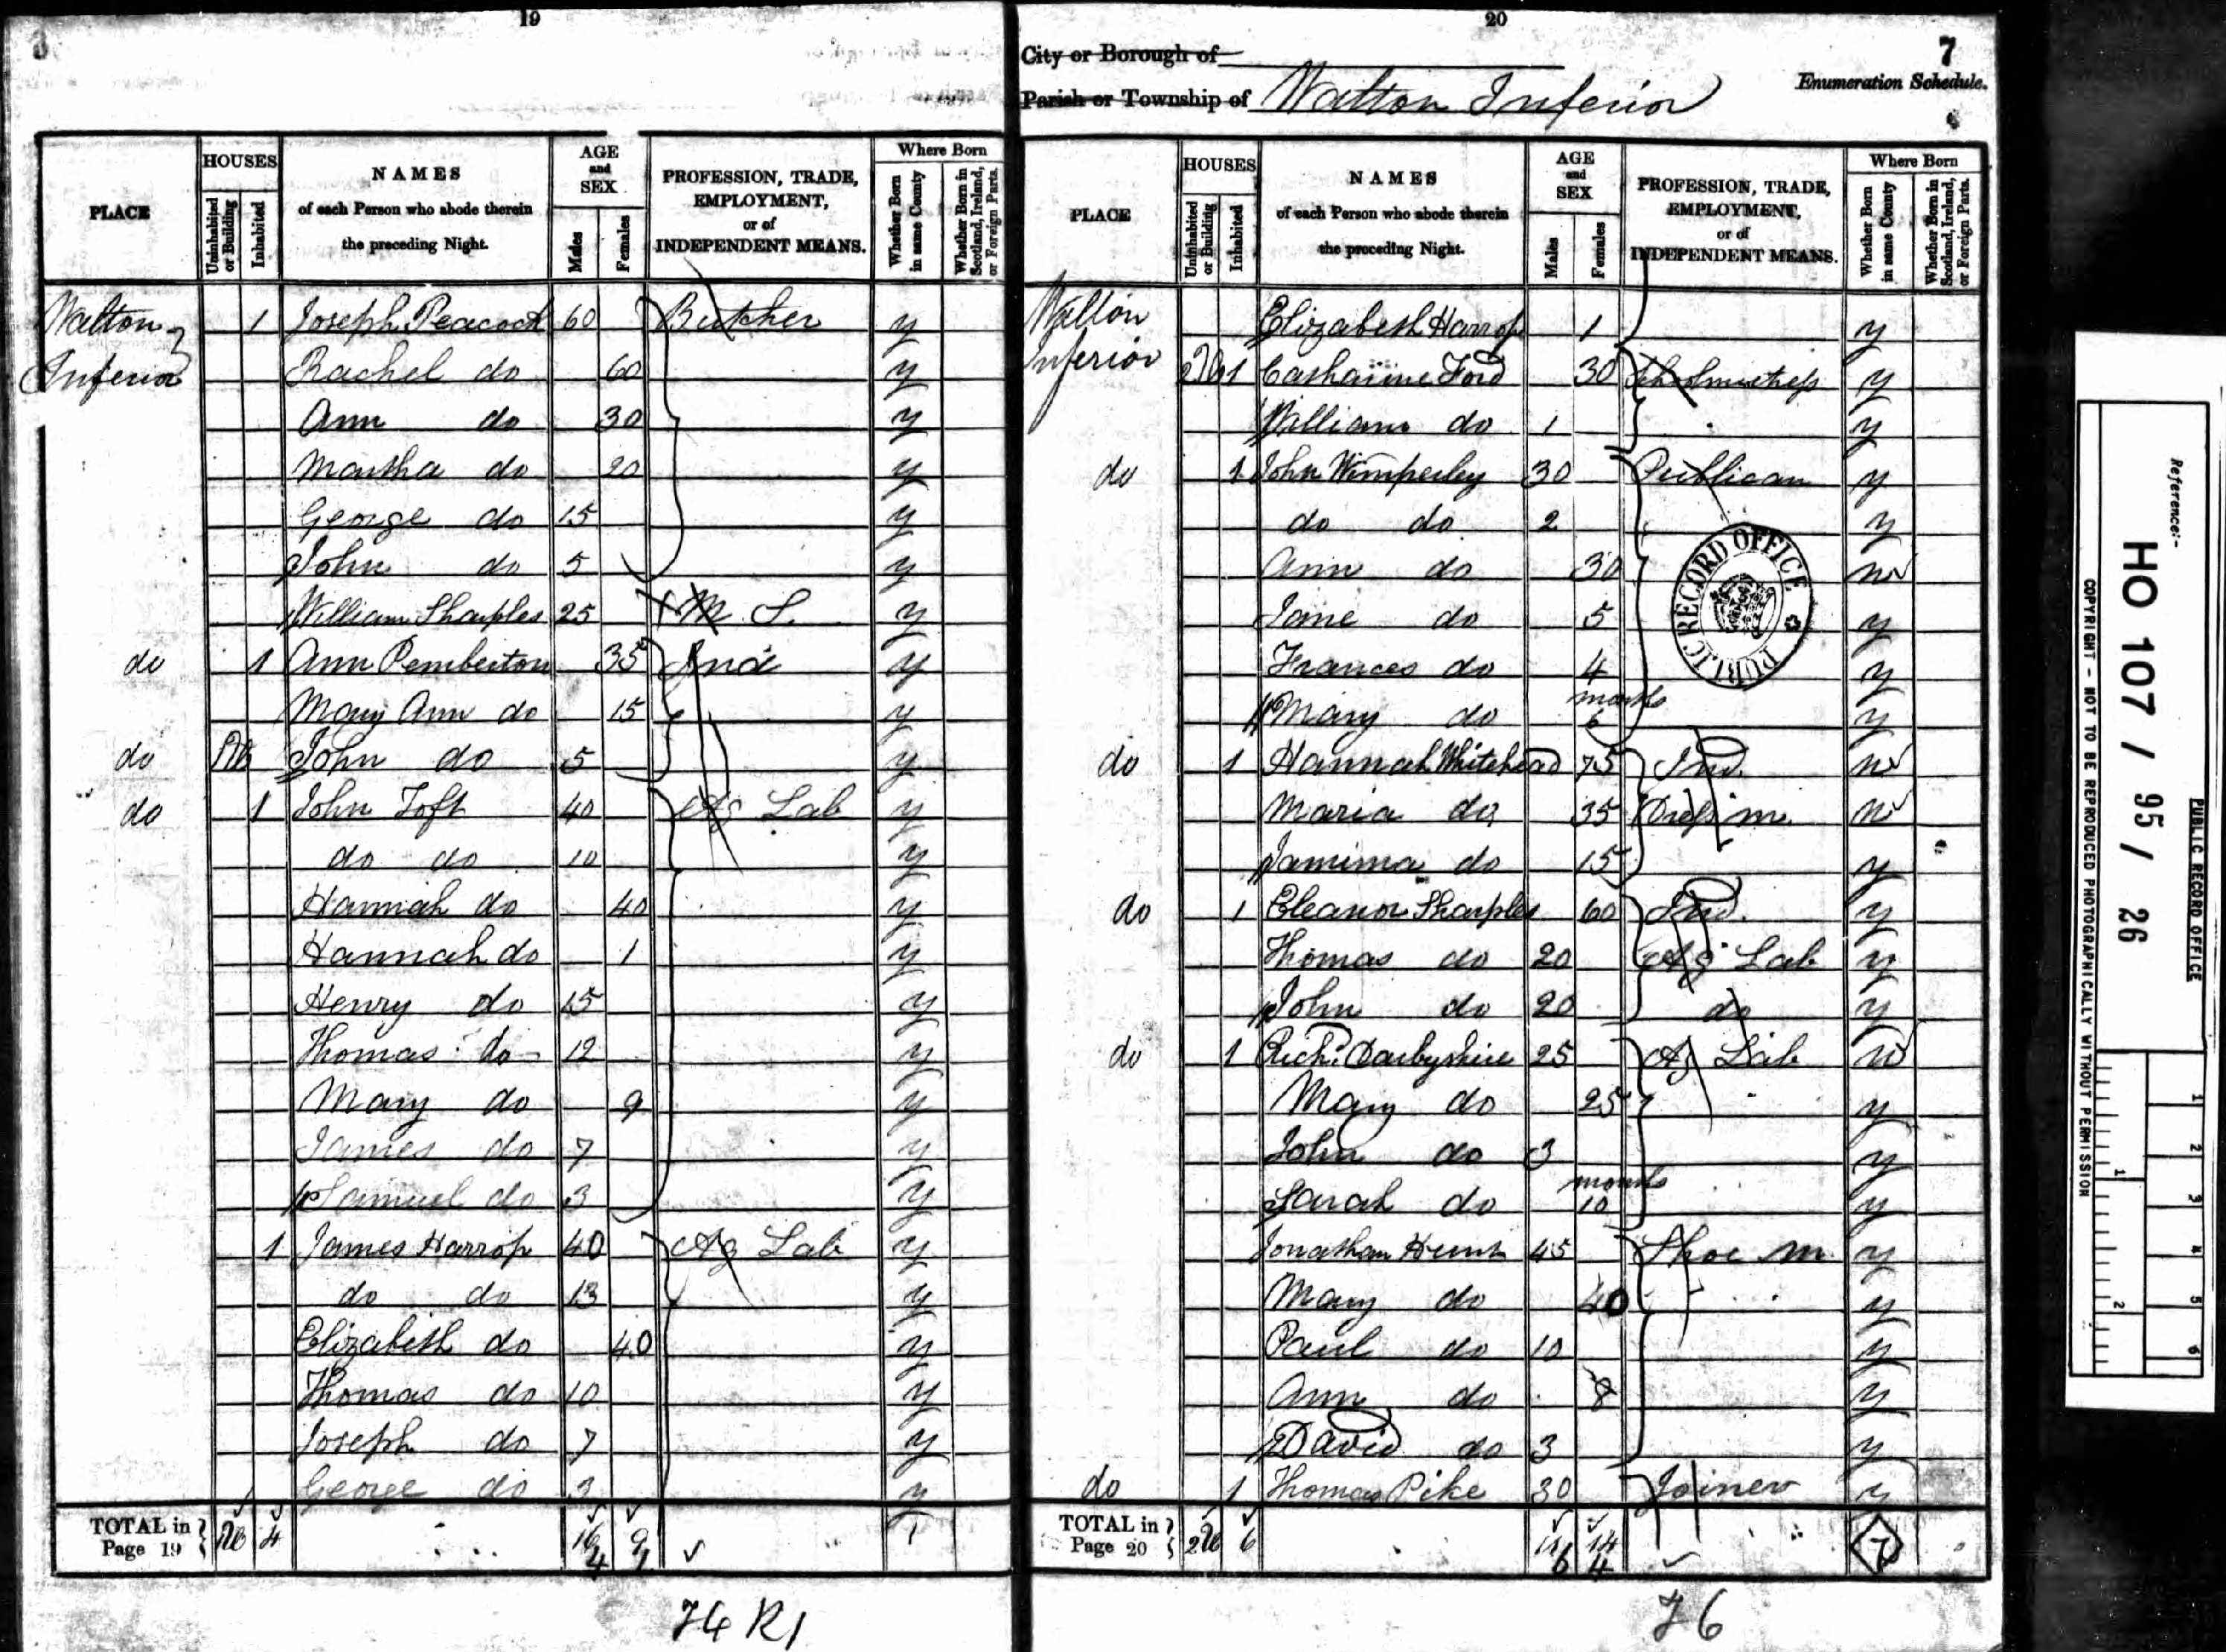 19
HOUSES
AGE and SEX
Where Born
PLACE
Uninhabited or Building
Inhabited
NAMES of each Person who abode therein the preceding Night.
Males
Females
PROFESSION, TRADE, EMPLOYMENT, or of INDEPENDENT MEANS.
Whether Born in same County
Whether Born in Scotland, Ireland, or Foreign Parts.
Walton 1 Joseph Peacock 60 Butcher y
Inferior Rachel do 60 y
Ann do 30 y
Martha do 20 y
George do 15 y
John do 5 y
William Sharples 25 M. S. y
do 1 Ann Pemberton 35 Ind y
Mary Ann do 15 y
do 1B John do 5 y
do 1 John Toft 40 Ag Lab y
do do 10 y
Hannah do 40 y
Hannah do 1 y
Henry do 15 y
Thomas do 12 y
Mary do 9 y
James do 7 y
Samuel do 3 y
1 James Harrop 40 Ag Lab y
do do 13 y
Elizabeth do 40 y
Thomas do 10 y
Joseph do 7 y
George do 3 y
TOTAL in Page 19 1B 4 16 9
4
74 R1
20
City or Borough of
7
Enumeration Schedule.
Parish or Township of Walton Inferior
HOUSES
AGE and SEX
Where Born
PLACE
Uninhabited or Building
Inhabited
NAMES of each Person who abode therein the preceding Night.
Males
Females
PROFESSION, TRADE, EMPLOYMENT, or of INDEPENDENT MEANS.
Whether Born in same County
Whether Born in Scotland, Ireland, or Foreign Parts.
Walton Elizabeth Harrop 1 y
Inferior 1 Catharine Ford 30 Schoolmistress y
William do 1 y
do 1 John Wimperley 30 Publican y
do do 2 y
Ann do 30 n
Jane do 5 y
Frances do 4 y
months
Mary do 6 y
do 1 Hannah Whitehead 75 Ind. n
Maria do 35 Dress m. n
Jamima do 15 y
do 1 Eleanor Sharples 60 Ind. y
Thomas do 20 Ag Lab y
John do 20 do y
do 1 Richd. Darbyshire 25 Ag Lab n
Mary do 25 y
John do 3 y
months
Sarah do 10 y
Jonathan Hunt 45 Shoe m. y
Mary do 40 y
Paul do 10 y
Ann do 8 y
David do 3 y
do 1 Thomas Pike 30 Joiner y
TOTAL in Page 20 6 11 14
6 4
7
76
PUBLIC RECORD OFFICE
PUBLIC RECORD OFFICE
Reference:-
HO 107 / 95 / 26
COPYRIGHT - NOT TO BE REPRODUCED PHOTOGRAPHICALLY WITHOUT PERMISSION
1 2 3 4 5 6
1 2